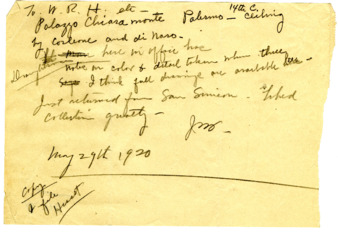 To W. R. H. etc -
14th C.
Palazzo Chiaramonte Palermo - ceiling
by Corleone and di Naro.
here in office have
notes on color & detail taken when there
I think full drawings are available
Just returned from San Simeon. Liked
collection greatly -
JM -
May 29th 1920
copy
file
Hearst